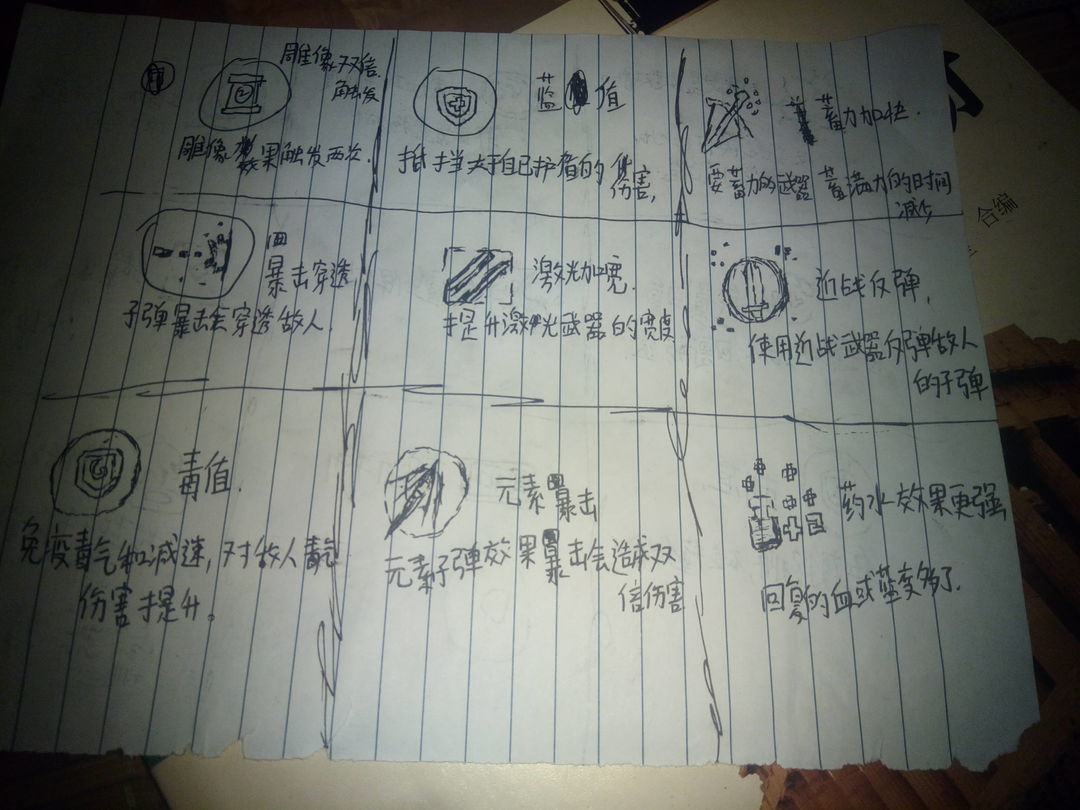 雕像双倍
触发
雕像效果触发两次.
蓝值
抵挡大于自己护盾的伤害,
蓄力加快.
要蓄力的武器 蓄满力的时间
减少
合编
暴击穿透
子弹暴击会穿透敌人.
激光加宽.
提升激光武器的宽度
近战反弹,
使用近战武器反弹敌人
的子弹
毒值.
免疫毒气和减速,对敌人毒气
伤害提升。
元素暴击
元素子弹效果暴击会造成双
倍伤害
药水效果更强
回复的血或蓝变多了.